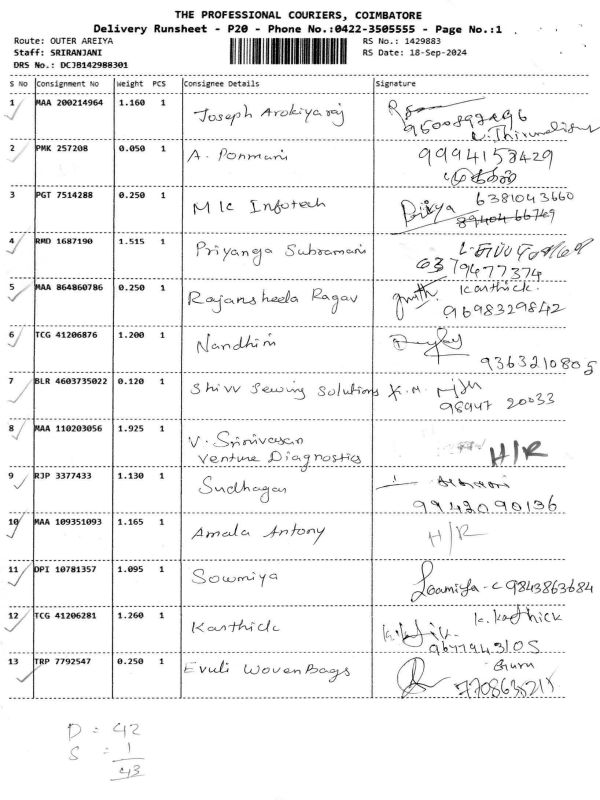 THE PROFESSIONAL COURIERS, COIMBATORE
Delivery Runsheet - P20 - Phone No.:0422-3505555 - Page No.:1
Route: OUTER AREIYA RS No.: 1429883
Staff: SRIRANJANI RS Date: 18-Sep-2024
DRS No.: DCJB142988301
S No Consignment No Weight PCS Consignee Details Signature
1 MAA 200214964 1.160 1 Joseph Arokiyaraj
2 PMK 257208 0.050 1 A. Ponmani 9994153429
3 PGT 7514288 0.250 1 M K Infotech Divya 6381043660
4 RMD 1687190 1.515 1 Priyanga Subramani
6379477374
5 MAA 864860786 0.250 1 Rajansheela Ragav Karthick.
9698329842
6 TCG 41206876 1.200 1 Nandhini
9363210805
7 BLR 4603735022 0.120 1 Shivv Sewing Solutions
98947 20033
8 MAA 110203056 1.925 1 V. Srinivasan H/R
Venture Diagnostics
9 RJP 3377433 1.130 1 Sudhagar
9942090136
10 MAA 109351093 1.165 1 Amala Antony H/R
11 DPI 10781357 1.095 1 Sowmiya 9843863684
12 TCG 41206281 1.260 1 Karthick K. Karthick
9677943105
13 TRP 7792547 0.250 1 Evuli WovenBags Guru
D = 42
S = 1
43